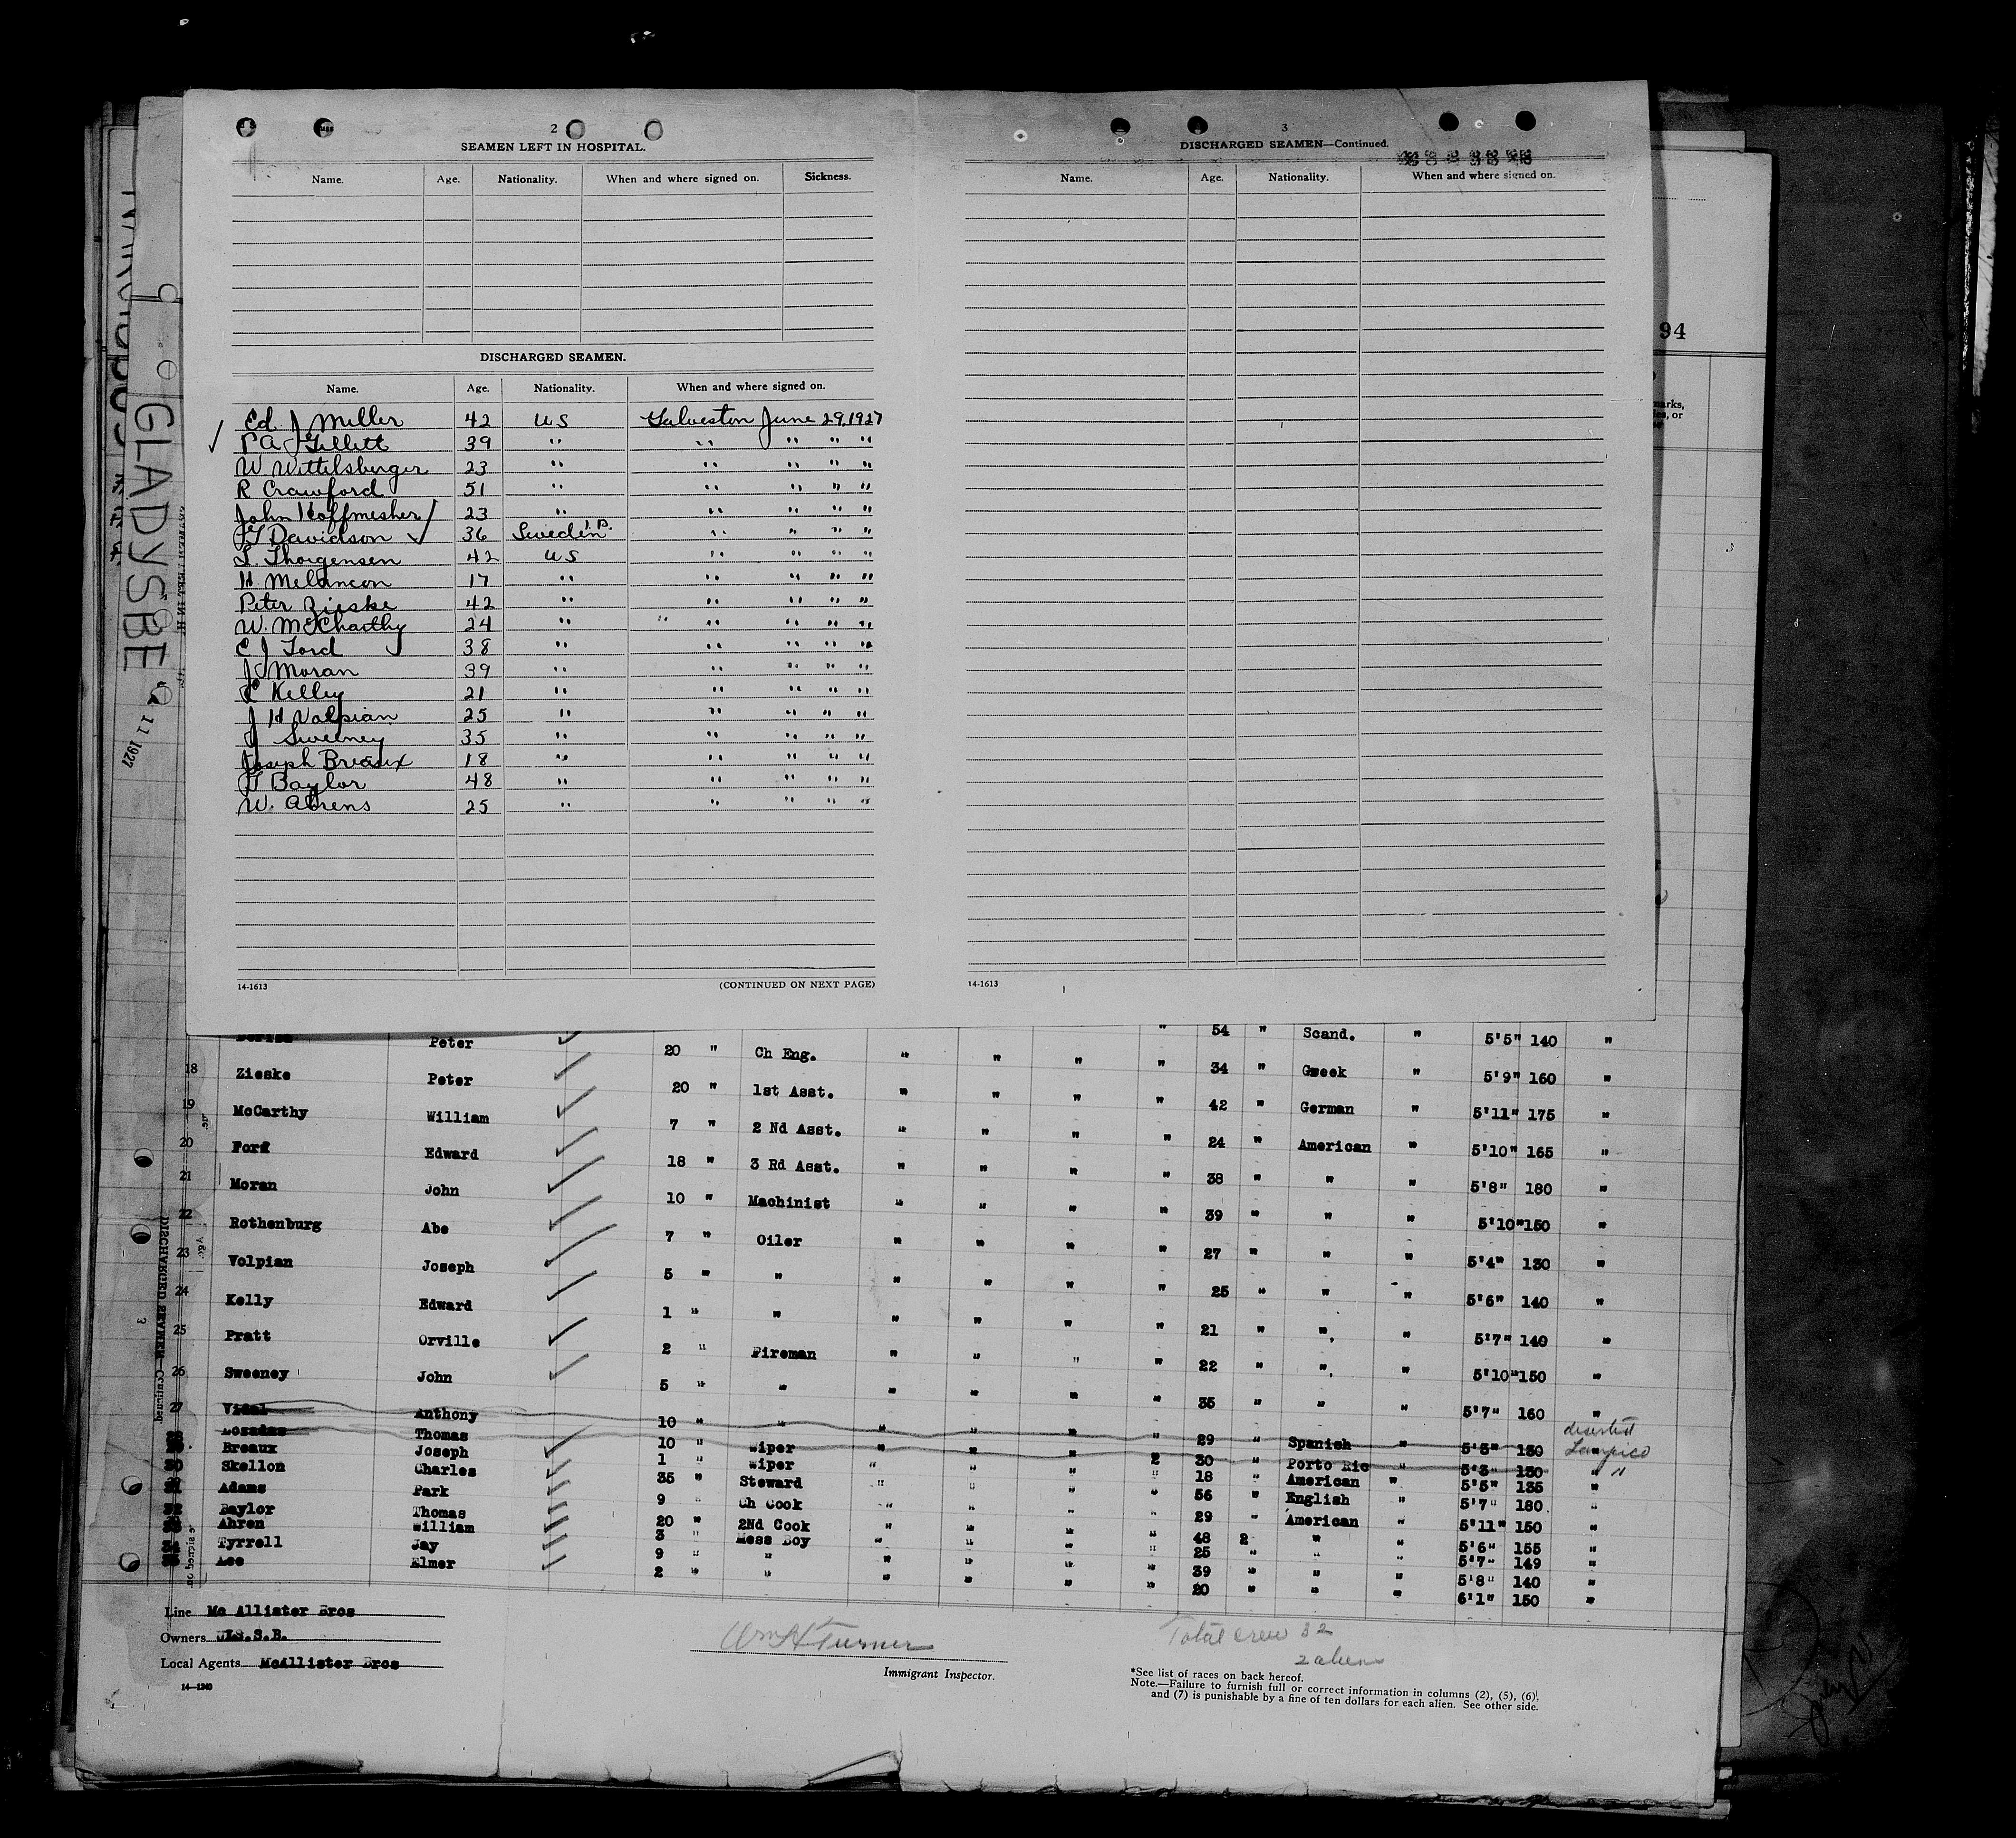 2
SEAMEN LEFT IN HOSPITAL.
Name. Age. Nationality. When and where signed on. Sickness.
DISCHARGED SEAMEN.
Name. Age. Nationality. When and where signed on.
Ed. J Miller 42 US Galveston June 29, 1927
P A Gillett 39 " " " "
W Wittelsberger 23 " " " "
R Crawford 51 " " " "
John Hoffmesher 23 " " " "
Davidson 36 Sweden " " "
Thorgensen 42 US " " "
H Melancon 17 " " " "
Peter Zieske 42 " " " "
W. McCharthy 24 " " " "
E J Ford 38 " " " "
J Moran 39 " " " "
E Kelley 21 " " " "
J H Volpian 25 " " " "
J Sweeney 35 " " " "
Joseph Breaux 18 " " " "
T Baylor 48 " " " "
W. Ahrens 25 " " " "
14-1613 (CONTINUED ON NEXT PAGE)
3
DISCHARGED SEAMEN—Continued.
Name. Age. Nationality. When and where signed on.
14-1613
94
GLADYSBE
11 1927
Peter 20 " Ch Eng. " " " " 54 " Scand. " 5'5" 140 "
18 Zieske Peter 20 " 1st Asst. " " " " 34 " Gweek " 5'9" 160 "
19 McCarthy William 7 " 2 Nd Asst. " " " " 42 " German " 5'11" 175 "
20 Ford Edward 18 " 3 Rd Asst. " " " " 24 " American " 5'10" 165 "
21 Moran John 10 " Machinist " " " " 38 " " " 5'8" 180 "
22 Rothenburg Abe 7 " Oiler " " " " 39 " " " 5'10" 150 "
23 Volpian Joseph 5 " " " " " " 27 " " " 5'4" 130 "
24 Kelly Edward 1 " " " " " " 25 " " " 5'6" 140 "
25 Pratt Orville 2 " Fireman " " " " 21 " " " 5'7" 140 "
26 Sweeney John 5 " " " " " " 22 " " " 5'10" 150 "
27 Vidal Anthony 10 " " " " " " 35 " " " 5'7" 160 " deserted
Thomas 10 " Wiper " " " " 29 " Spanish " 5'5" 150 "
Breaux Joseph 1 " Wiper " " " 2 30 " Porto Ric " 5'3" 130 " "
30 Skellon Charles 35 " Steward " " " " 18 " American " 5'5" 135 "
Adams Park 9 " Ch Cook " " " " 56 " English " 5'7" 180 "
32 Baylor Thomas 20 " 2Nd Cook " " " " 29 " American " 5'11" 150 "
Ahren William 3 " Mess Boy " " " " 48 2 " " 5'6" 155 "
Tyrrell Jay 9 " " " " " " 25 " " " 5'7" 149 "
Lee Elmer 2 " " " " " " 39 " " " 5'8" 140 "
20 " " " 6'1" 150 "
Line Mc Allister Bros
Owners U.S.S.B.
Local Agents McAllister Bros
14—1240
Wm H Turner
Immigrant Inspector.
Total crew 32
2 alien
*See list of races on back hereof.
Note.—Failure to furnish full or correct information in columns (2), (5), (6),
and (7) is punishable by a fine of ten dollars for each alien. See other side.